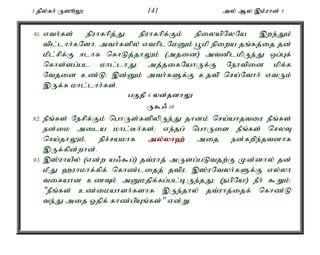 3 தில்கர் ருஸூலு 141 அல் ஆல இம்ரான் 3
91. எவர்கள் நிராகரித்து நிராகரிக்கும் நிலையிலேயே இறந்தும்
விட்டார்களோ. அவர்களில் எவரிடமேனும் பூமி நிறைய தங்கத்தை தன்
மீட்சிக்கு ஈடாக கொடுத்தாலும் (அதனை) அவனிடமிருந்து ஒப்புக்
கொள்ளப்பட மாட்டாது. அத்தகையோருக்கு நோவினை மிக்க
வேதனை உண்டு; இன்னும் அவர்களுக்கு உதவி செய்வோர் எவரும்
இருக்க மாட்டார்கள்.
பகுதி 4 லன்தனாலு
ருகூஃ 10
92. நீங்கள் நேசிக்கும் பொருள்களிலிருந்து தானம் செய்யாதவரை நீங்கள்
நன்மை அடைய மாட்டீர்கள்; எந்தப் பொருளை நீங்கள் செலவு
செய்தாலும். நிச்சயமாக அல்லாஹ் அதை நன்கறிந்தவனாக
இருக்கின்றான்.
93. இஸ்ராயீல் (என்ற யஃகூப்) தவ்ராத் அருளப்படுவதற்கு முன்னால் தன்
மீது ஹராமாக்கிக் கொண்டதைத் தவிர, இஸ்ரவேலர்களுக்கு எல்லா
வகையான உணவும் அனுமதிக்கப்பட்டிருந்தது. (நபியே) நீர் கூறும்:
"நீங்கள் உண்மையாளர்களாக இருந்தால் தவ்ராத்தைக் கொண்டு
வந்து அதை ஓதிக் காண்பியுங்கள்" என்று.